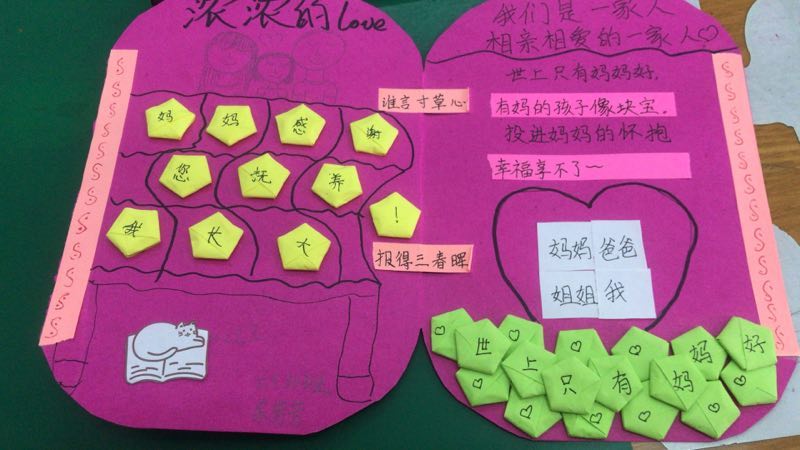 浓浓的love
谁言寸草心
妈妈感谢
您抚养
我长大!
报得三春晖
我们是一家人
相亲相爱的一家人♡
世上只有妈妈好,
有妈的孩子像块宝。
投进妈妈的怀抱
幸福享不了~
妈妈 爸爸
姐姐 我
世上只有妈妈好